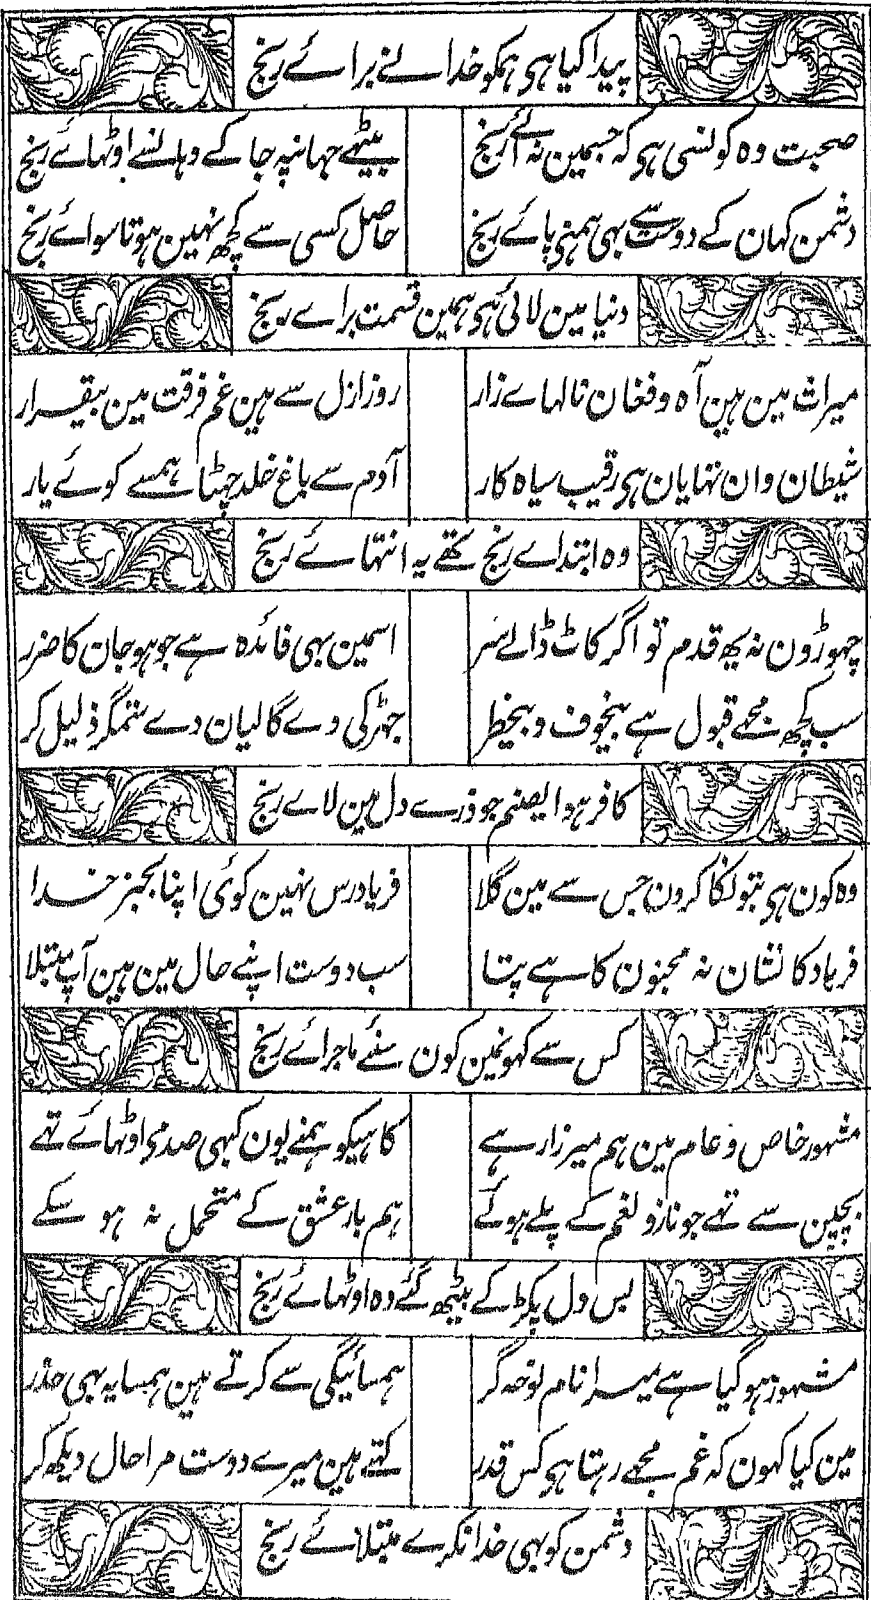 پیدا کیا ہی ہمکو خدا نے برائے رنج
صحبت وہ کونسی ہی کہ جسمین نہ آئے رنج
بیٹھے جہانپہ جا کے وہانسے اوٹھائے رنج
دشمن کہان کے دوست سے بھی ہمنے پائے رنج
حاصل کسی سے کچھ نہین ہوتا سوائے رنج
دنیا مین لائی ہی ہمین قسمت براے رنج
میراث مین ہین آہ و فغان نالہاے زار
روز ازل سے ہین غم فرقت مین بیقرار
شیطان وان نہایان ہی رقیب سیاہ کار
آدم سے باغ خلد چھٹا ہمسے کوئے یار
وہ ابتداے رنج تھے یہ انتہائے رنج
چھوڑون نہ یہ قدم تو اگر کاٹ ڈالے سر
اسمین بہی فائدہ ہے جو ہو جان کا ضرر
سب کچھ مجھے قبول ہے بیخوف و بیخطر
جھڑکی دے گالیان دے ستمگر ذلیل کر
کافر ہو ایصنم جو ذرے دل مین لاے رنج
وہ کون ہی بتو نکا کرون جس سے مین گلا
فریادرس نہین کوئی اپنا بجز خدا
فرہاد کا نشان نہ مجنون کا ہے پتا
سب دوست اپنے حال مین ہین آپ مبتلا
کس سے کہونمین کون سنے ماجرائے رنج
مشہور خاص و عام مین ہم میرزا رہے
کاہیکو ہمنے یون کبھی صدمے اوٹھائے تھے
بچپن سے تھے جو ناز و نغم کے پلے ہوئے
ہم بار عشق کے متحمل نہ ہو سکے
بس دل پکڑ کے بیٹھ گئے وہ اوٹھائے رنج
مشہور ہو گیا ہے میرا نام نوحہ گر
ہمسائیگی سے کرتے ہین ہمسایہ بھی حذر
مین کیا کہون کہ غم مجھے رہتا ہی کس قدر
کہتے ہین میرے دوست مرا حال دیکھ کر
دشمن کو بھی خدا نکرے مبتلائے رنج